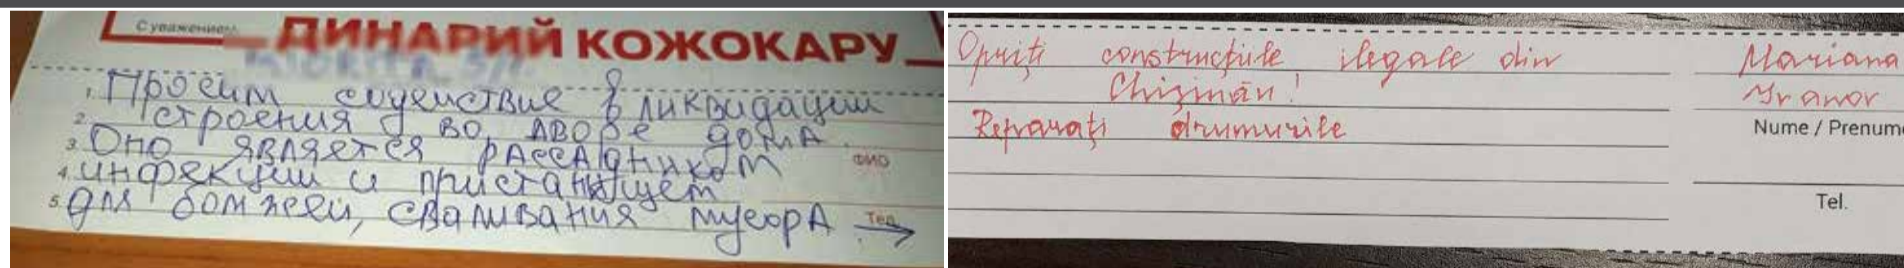 С уважением,
ДИНАРИЙ КОЖОКАРУ
1. Просим содействие в ликвидации
2. строения во дворе дома.
3. Оно является рассадником
ФИО
4. инфекции и пристанищем
5. для бомжей, сваливания мусора →
Тел.
Opriți construcțiile ilegale din
Chișinău!
Reparați drumurile
Mariana
Nume / Prenume
Tel.